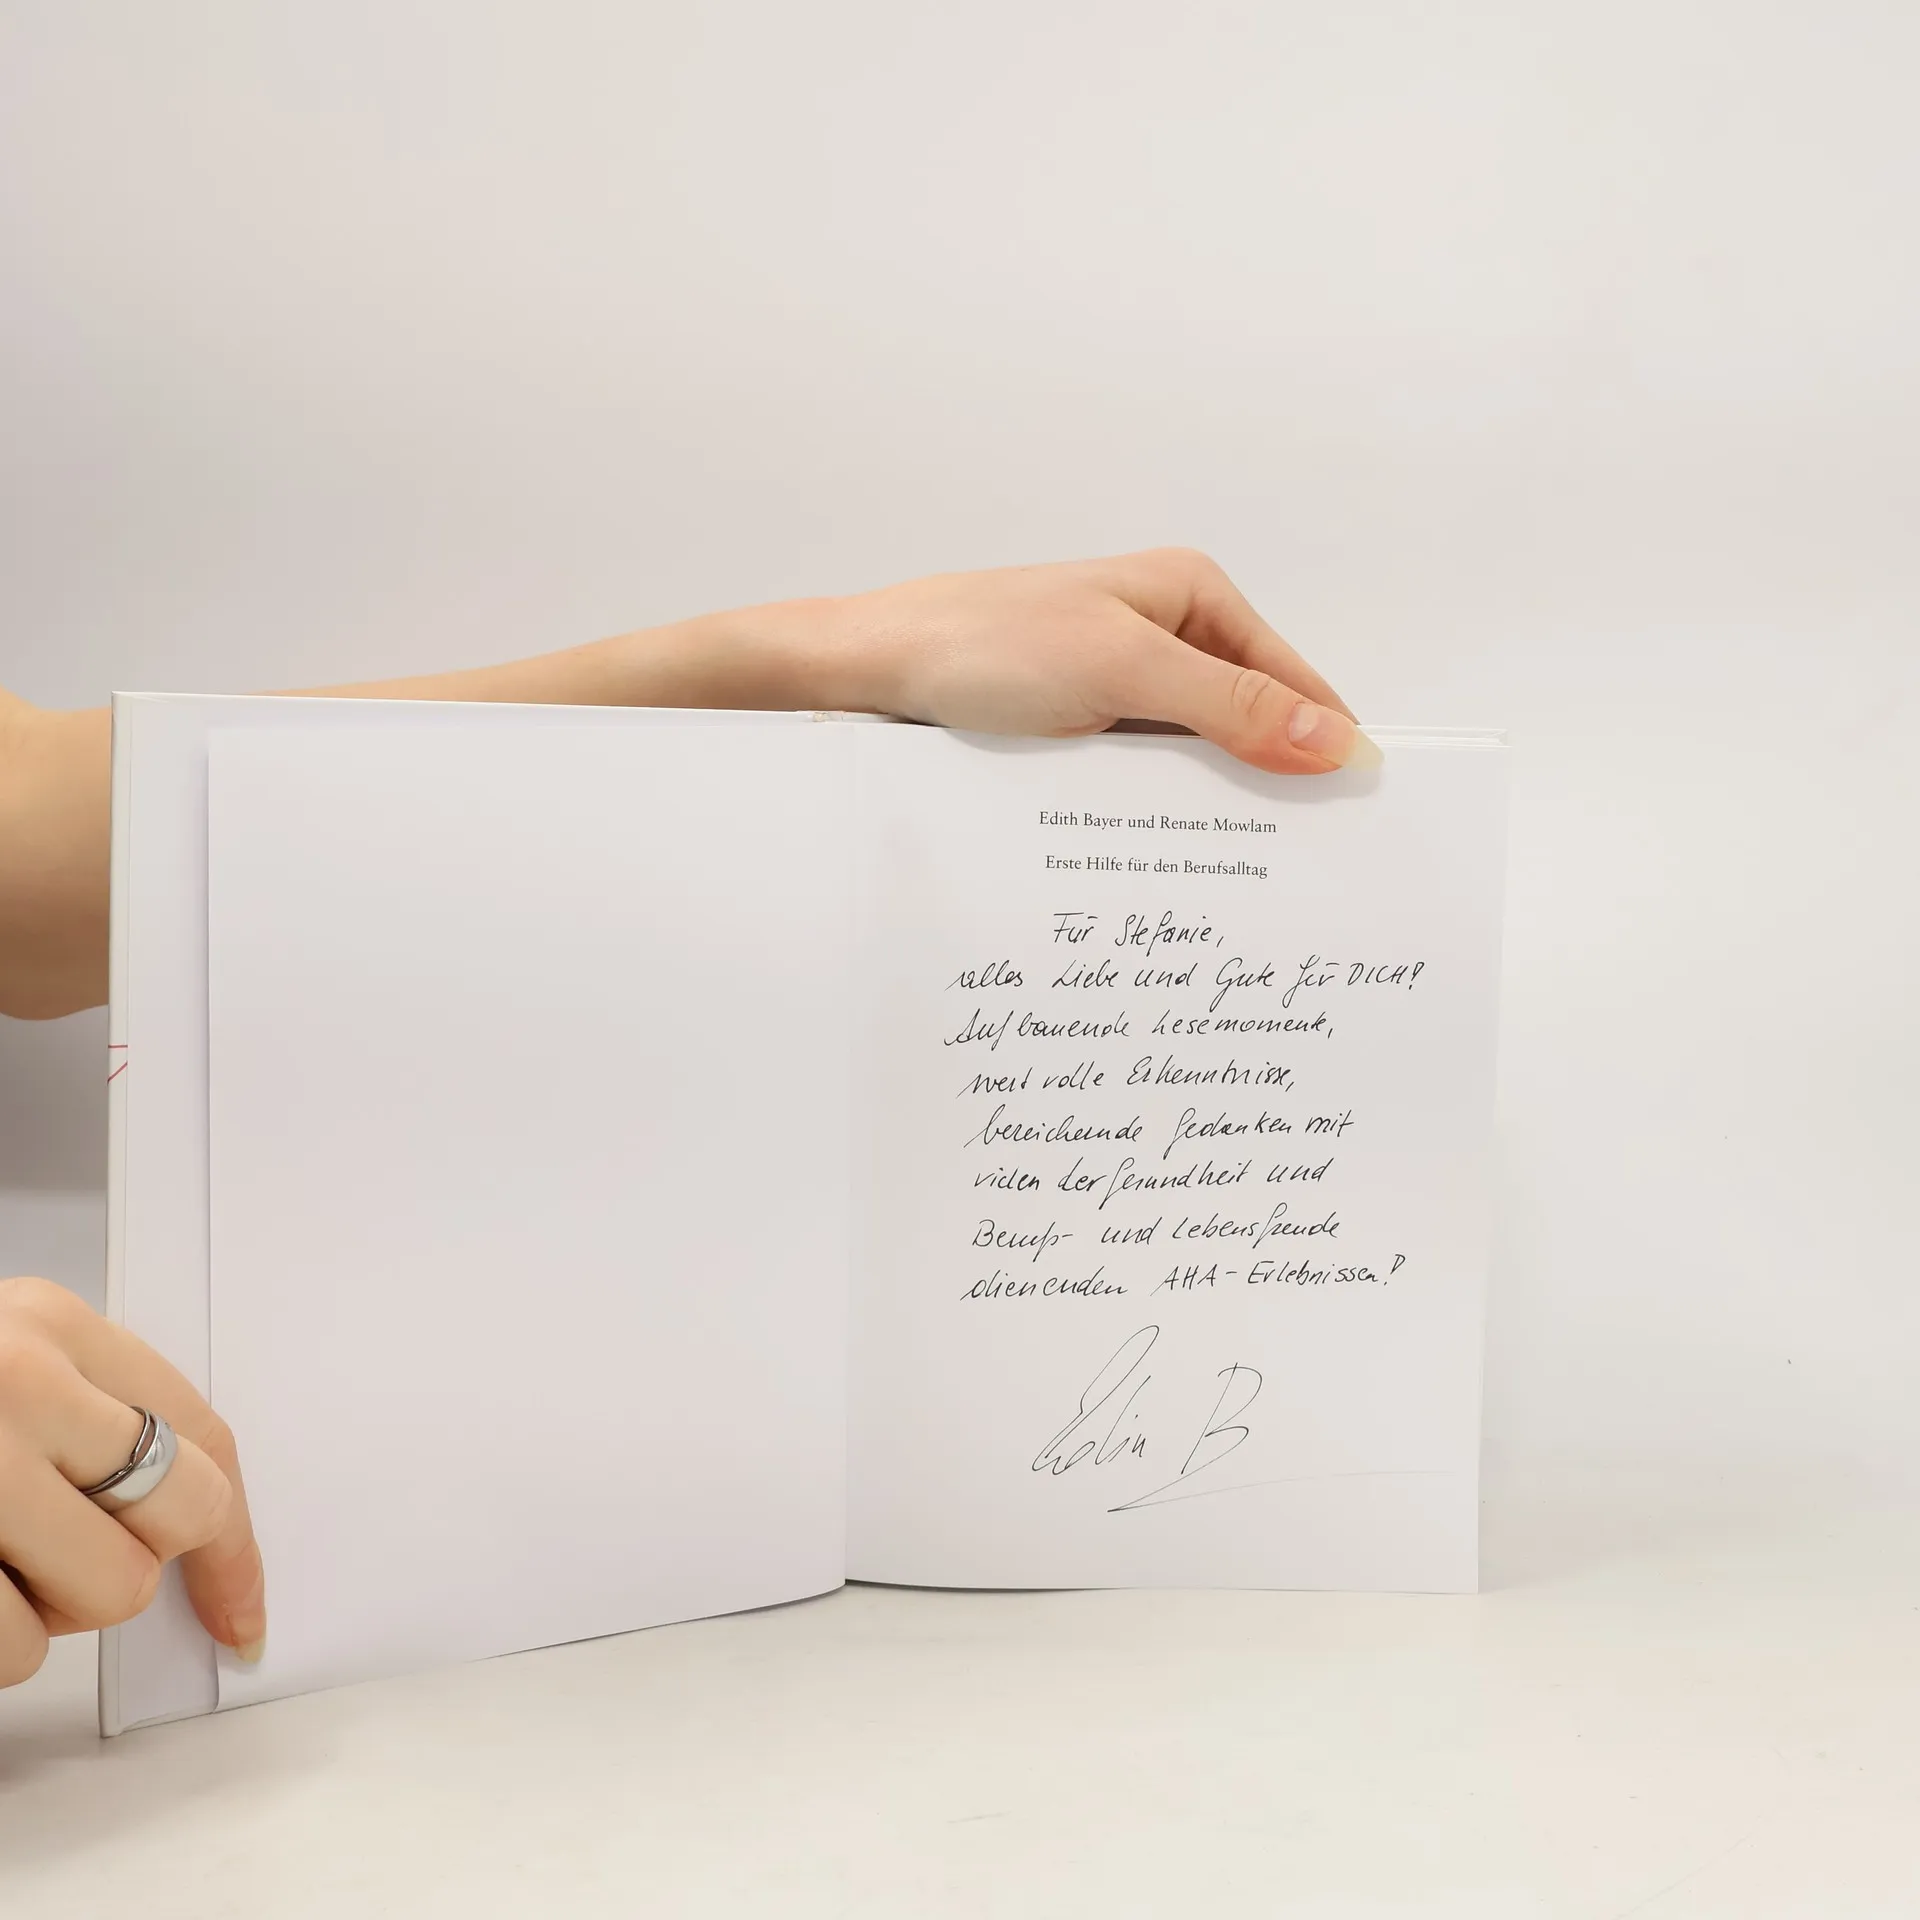 Edith Bayer und Renate Mowlam
Erste Hilfe für den Berufsalltag
Für Stefanie,
alles Liebe und Gute für DICH!
Aufbauende Lesemomente,
wertvolle Erkenntnisse,
bereichernde Gedanken mit
vielen der Gesundheit und
Berufs- und Lebensfreude
dienenden AHA-Erlebnissen!